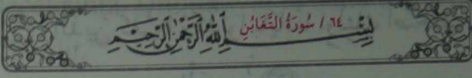 ٦٤ / سُورَةُ التَّغَابُنِ
بِسْمِ اللَّهِ الرَّحْمَٰنِ الرَّحِيمِ